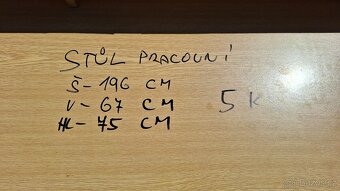 STŮL PRACOVNÍ
Š - 196 CM
V - 67 CM
HL - 75 CM
5 K